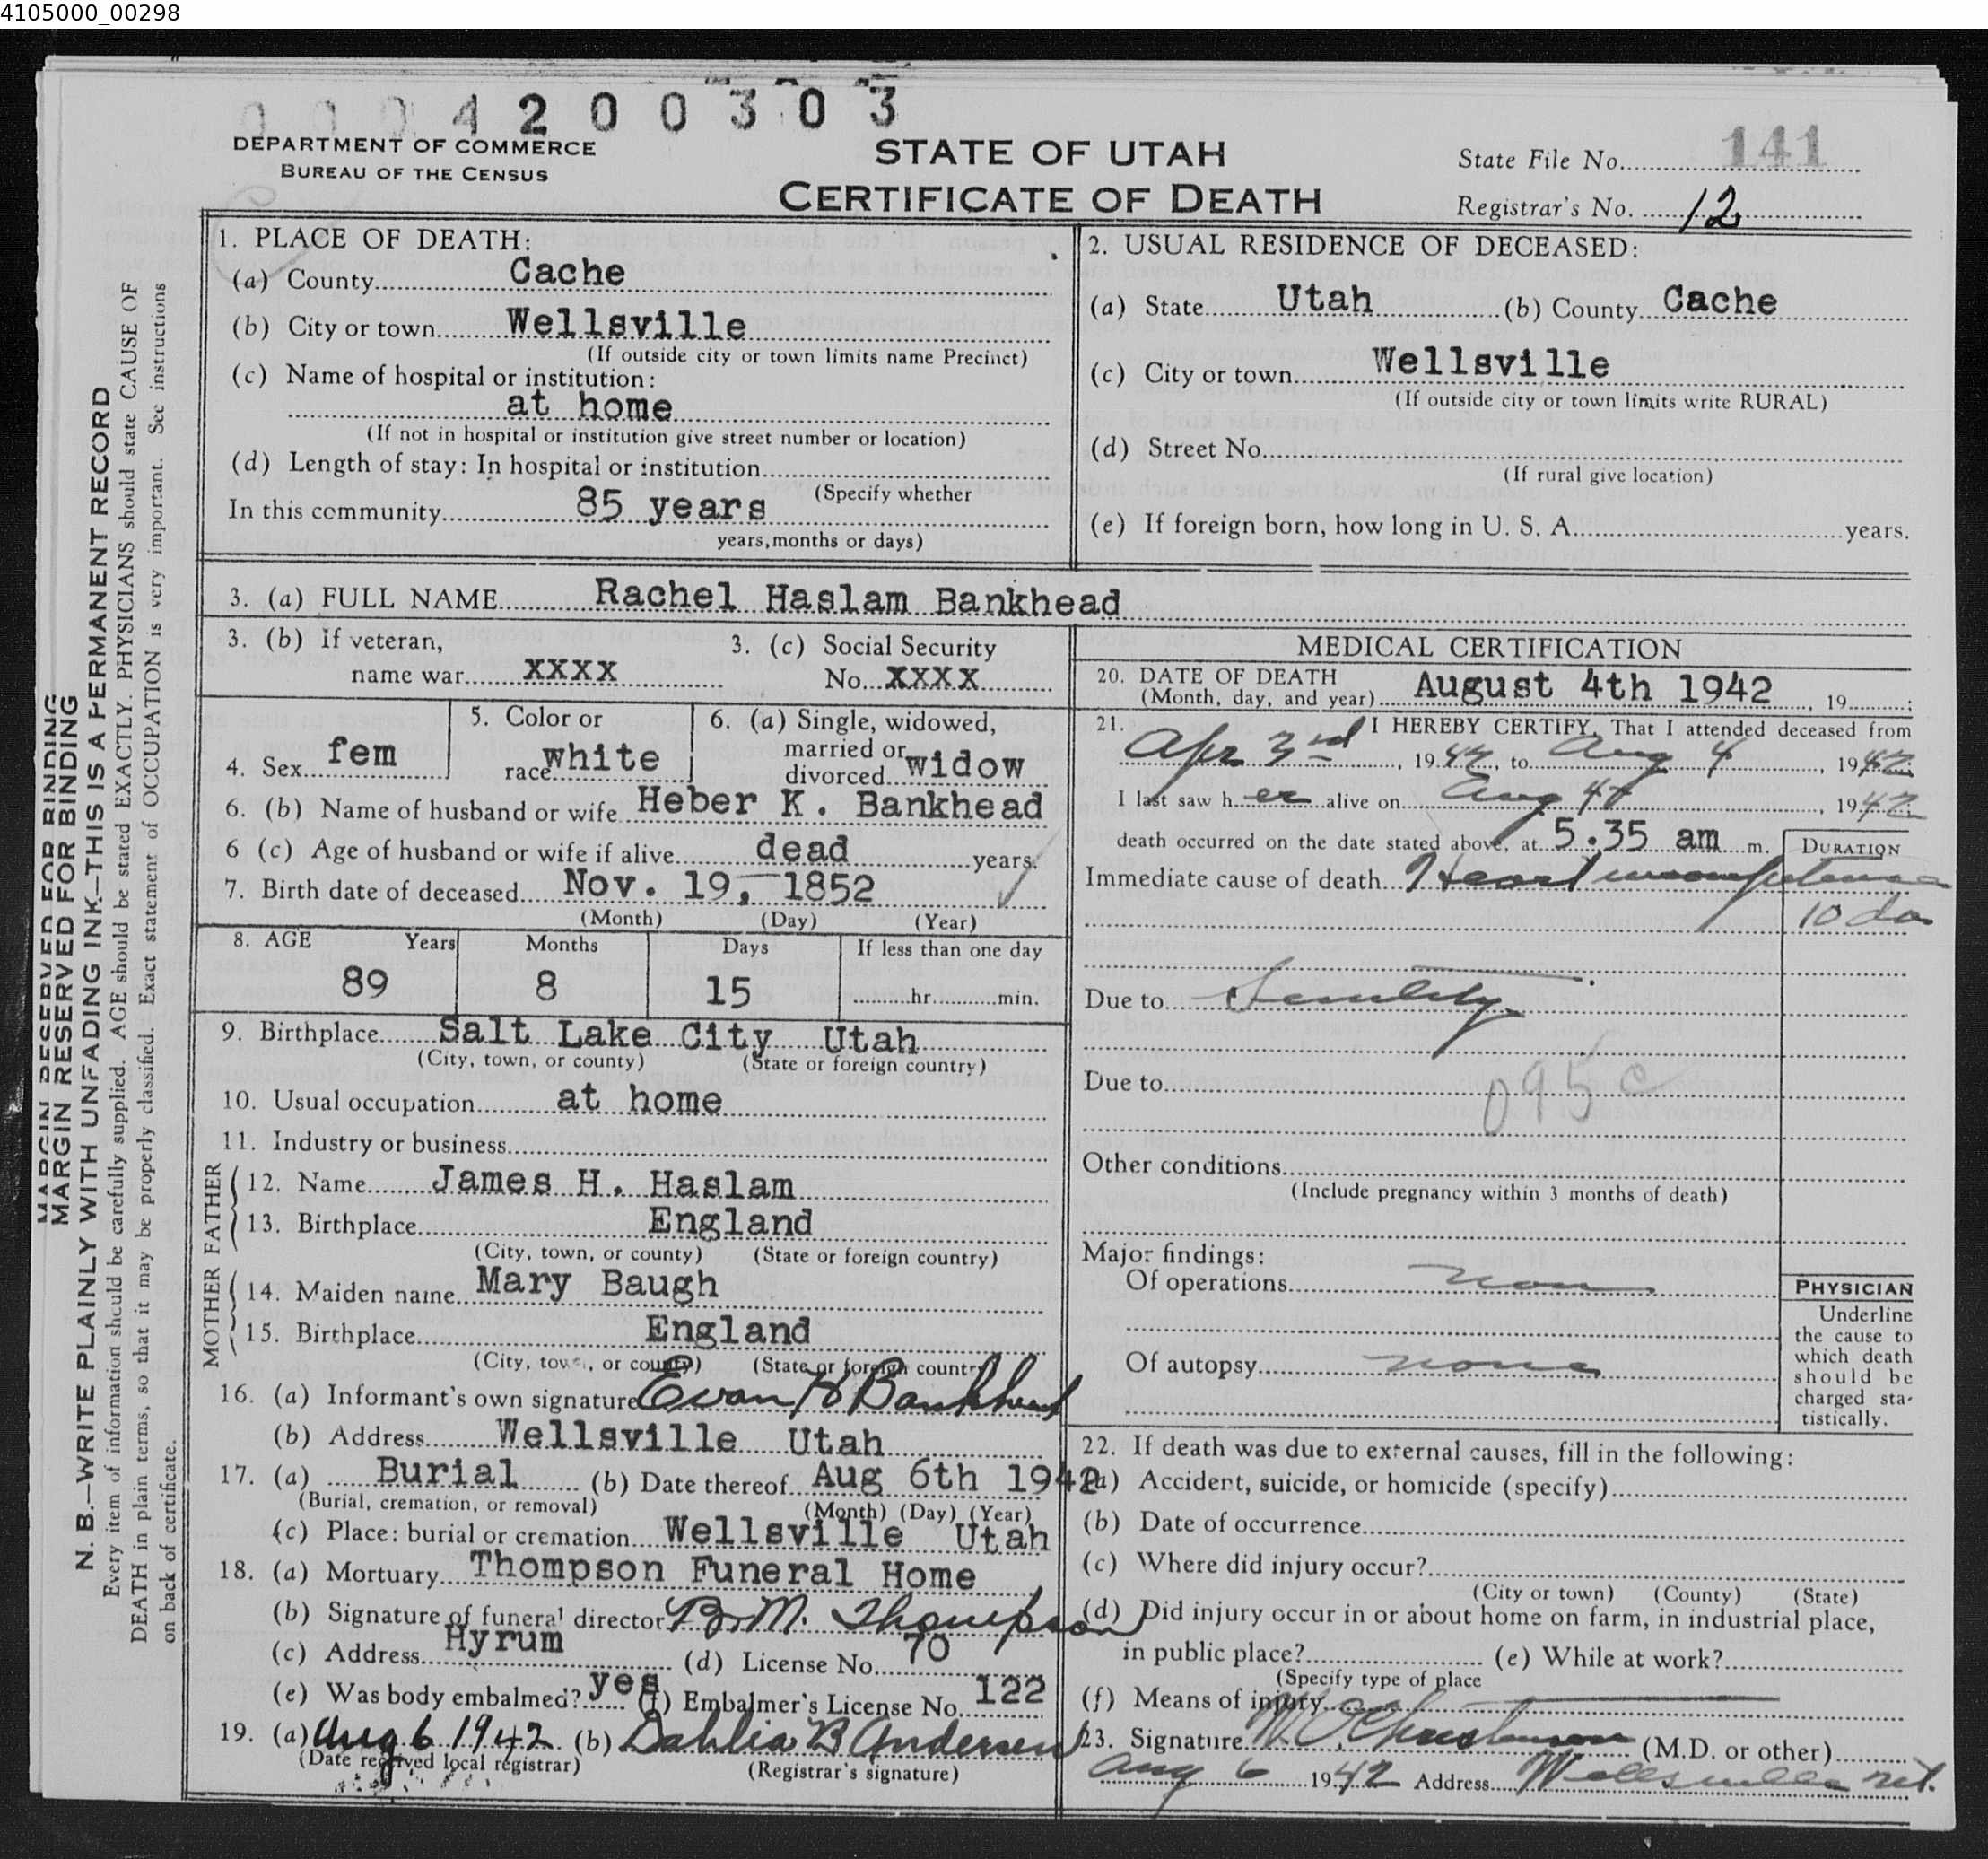 4105000_00298
0004200303
DEPARTMENT OF COMMERCE
BUREAU OF THE CENSUS
STATE OF UTAH
CERTIFICATE OF DEATH
State File No. 141
Registrar's No. 12
MARGIN RESERVED FOR BINDING
MARGIN RESERVED FOR BINDING
N. B.—WRITE PLAINLY WITH UNFADING INK—THIS IS A PERMANENT RECORD
Every item of information should be carefully supplied. AGE should be stated EXACTLY. PHYSICIANS should state CAUSE OF
DEATH in plain terms, so that it may be properly classified. Exact statement of OCCUPATION is very important. See instructions
on back of certificate.
1. PLACE OF DEATH:
(a) County Cache
(b) City or town Wellsville
(If outside city or town limits name Precinct)
(c) Name of hospital or institution:
at home
(If not in hospital or institution give street number or location)
(d) Length of stay: In hospital or institution
(Specify whether
In this community 85 years
years, months or days)
2. USUAL RESIDENCE OF DECEASED:
(a) State Utah (b) County Cache
(c) City or town Wellsville
(If outside city or town limits write RURAL)
(d) Street No.
(If rural give location)
(e) If foreign born, how long in U. S. A. years.
3. (a) FULL NAME Rachel Haslam Bankhead
3. (b) If veteran,
name war XXXX
3. (c) Social Security
No. XXXX
4. Sex fem
5. Color or
race white
6. (a) Single, widowed,
married or
divorced widow
6. (b) Name of husband or wife Heber K. Bankhead
6 (c) Age of husband or wife if alive dead years.
7. Birth date of deceased Nov. 19, 1852
(Month) (Day) (Year)
8. AGE Years Months Days If less than one day
89 8 15 hr. min.
9. Birthplace Salt Lake City Utah
(City, town, or county) (State or foreign country)
10. Usual occupation at home
11. Industry or business
FATHER
12. Name James H. Haslam
13. Birthplace England
(City, town, or county) (State or foreign country)
MOTHER
14. Maiden name Mary Baugh
15. Birthplace England
(City, town, or county) (State or foreign country)
16. (a) Informant's own signature Evan H Bankhead
(b) Address Wellsville Utah
17. (a) Burial (b) Date thereof Aug 6th 1942
(Burial, cremation, or removal) (Month) (Day) (Year)
(c) Place: burial or cremation Wellsville Utah
18. (a) Mortuary Thompson Funeral Home
(b) Signature of funeral director B. M. Thompson
(c) Address Hyrum (d) License No. 70
(e) Was body embalmed? yes (f) Embalmer's License No. 122
19. (a) Aug 6 1942 (b) Dahlia B Andersen
(Date received local registrar) (Registrar's signature)
MEDICAL CERTIFICATION
20. DATE OF DEATH
(Month, day, and year) August 4th 1942, 19 ;
21. I HEREBY CERTIFY, That I attended deceased from
Apr 3rd, 1942, to Aug 4, 1942
I last saw her alive on Aug 4, 1942
death occurred on the date stated above, at 5.35 am m.
DURATION
Immediate cause of death Heart incompetence
10 da
Due to Senility
Due to
095c
Other conditions
(Include pregnancy within 3 months of death)
Major findings:
Of operations none
Of autopsy none
PHYSICIAN
Underline
the cause to
which death
should be
charged sta-
tistically.
22. If death was due to external causes, fill in the following:
(a) Accident, suicide, or homicide (specify)
(b) Date of occurrence
(c) Where did injury occur?
(City or town) (County) (State)
(d) Did injury occur in or about home on farm, in industrial place,
in public place? (e) While at work?
(Specify type of place
(f) Means of injury
23. Signature W. O. Christensen (M.D. or other)
Aug 6 1942 Address Wellsville Ut.